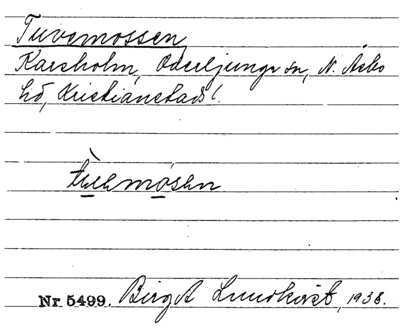 Tuvemossen
Karsholm, Oderljunga sn, N. Åsbo
hd, Kristianstads l.
Nr 5499. Birgit Lundkvist, 1938.